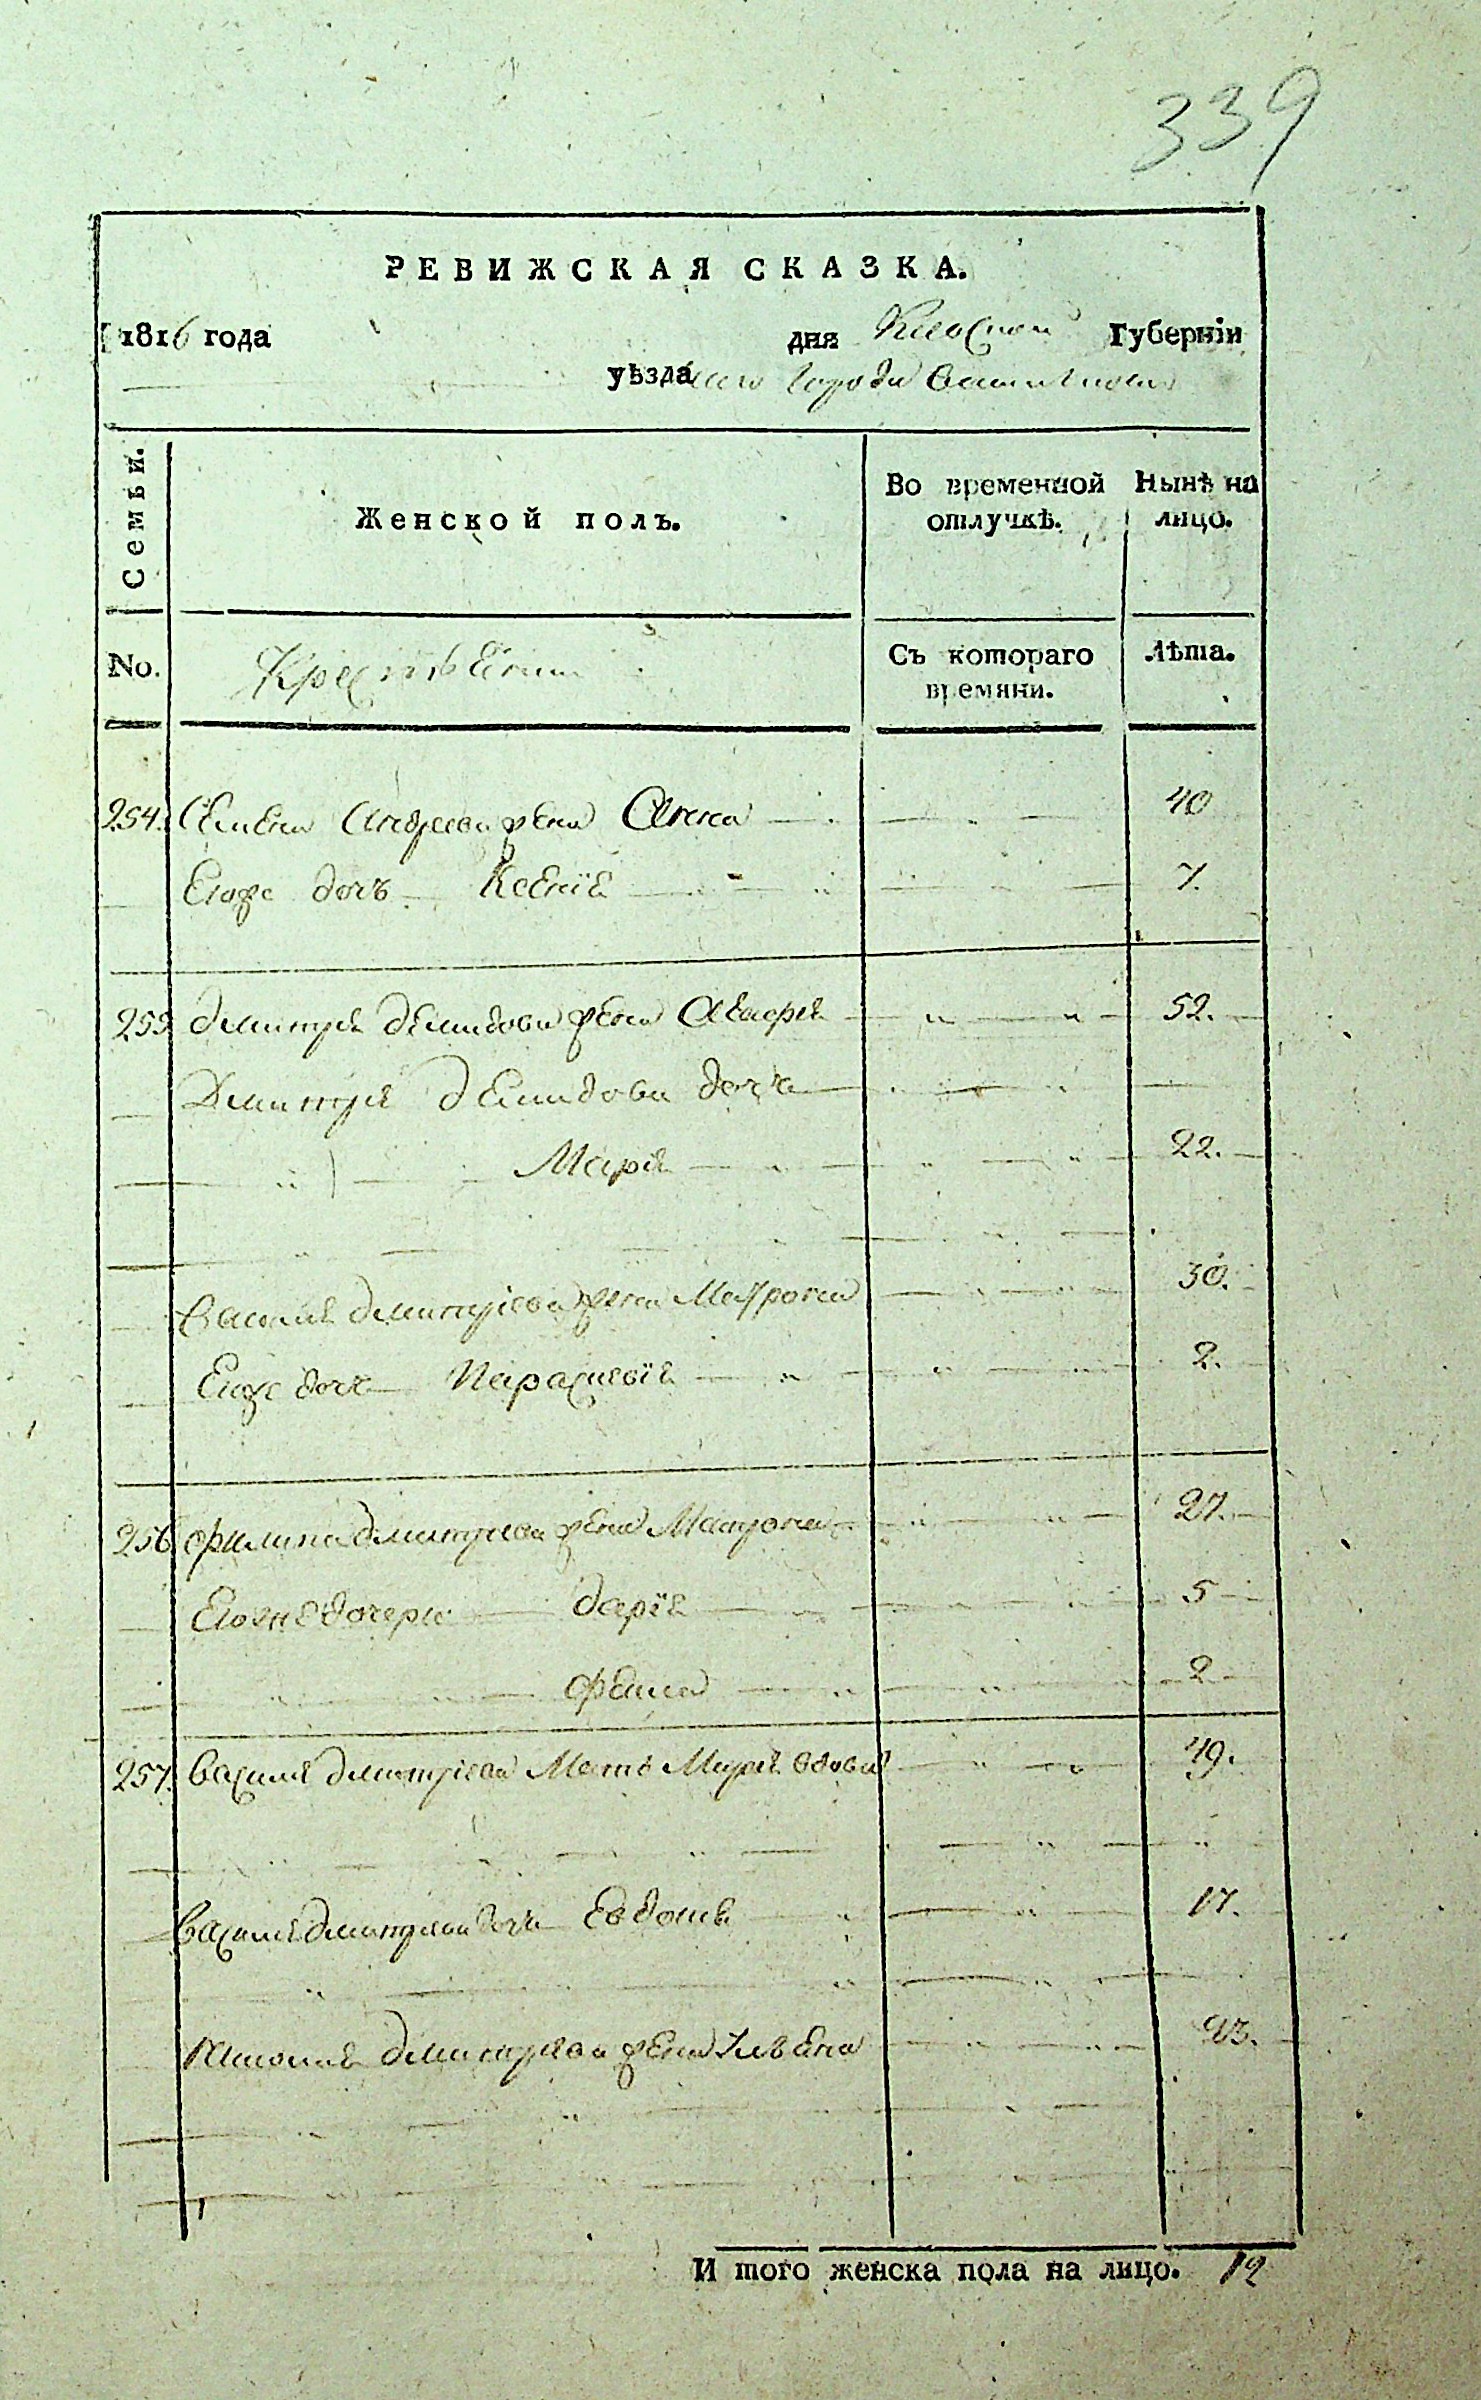 339
РЕВИЖСКАЯ СКАЗКА.
1816 года дня Киевской Губерніи
уѣзднаго города Василькова
Семьи. Женской полъ. Во временной отлучкѣ. Нынѣ на лицо.
No. Крестьяни Съ котораго времяни. Лѣта.
254. Семена Андреева жена Анна 40
Егоже дочь Ксенія 7.
255 Дмитрія Демидова жена Агафія 52.
Дмитрія Демидова дочь
Марія 22.
Василія Дмитріева жена Матрона 30.
Егоже дочь Параскевія 2.
256 Филипа Дмитріева жена Матрона 27.
Егожъ дочери Дарія 5
Фекла 2
257. Василія Дмитріева Мать Марія вдова 49.
Василія Дмитріева дочь Евдокія 17.
Дмитріева жена Ульяна 23.
И того женска пола на лицо. 12